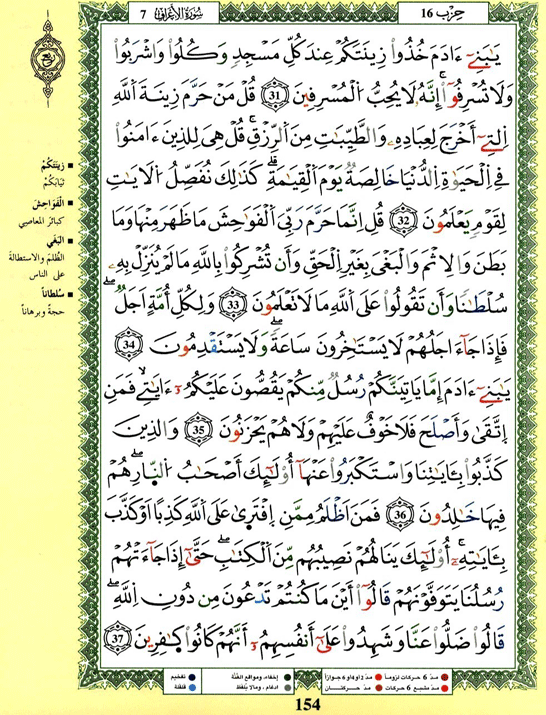 7 سُورَةُ الْأَعْرَافِ حِزْب 16
يَٰبَنِےٓ ءَادَمَ خُذُواْ زِينَتَكُمْ عِندَ كُلِّ مَسْجِدٖ وَكُلُواْ وَاشْرَبُواْ
وَلَا تُسْرِفُوٓاْۖ إِنَّهُۥ لَا يُحِبُّ اُلْمُسْرِفِينَ 31 قُلْ مَنْ حَرَّمَ زِينَةَ اَللَّهِ
اِلتِےٓ أَخْرَجَ لِعِبَادِهِۦ وَالطَّيِّبَٰتِ مِنَ اَلرِّزْقِۖ قُلْ هِيَ لِلذِينَ ءَامَنُواْ
فِے اِلْحَيَوٰةِ اِلدُّنْيَا خَالِصَةٞ يَوْمَ اَلْقِيَٰمَةِۖ كَذَٰلِكَ نُفَصِّلُ اُلَايَٰتِ
لِقَوْمٖ يَعْلَمُونَ 32 قُلِ اِنَّمَا حَرَّمَ رَبِّيَ اَلْفَوَٰحِشَ مَا ظَهَرَ مِنْهَا وَمَا
بَطَنَ وَالِاثْمَ وَالْبَغْيَ بِغَيْرِ اِلْحَقِّ وَأَن تُشْرِكُواْ بِاللَّهِ مَا لَمْ يُنَزِّلْ بِهِۦ
سُلْطَٰناٗ وَأَن تَقُولُواْ عَلَى اَللَّهِ مَا لَا تَعْلَمُونَ 33 وَلِكُلِّ أُمَّةٍ اَجَلٞۖ
فَإِذَا جَآءَ اجَلُهُمْ لَا يَسْتَٰخِرُونَ سَاعَةٗ وَلَا يَسْتَقْدِمُونَ 34
يَٰبَنِےٓ ءَادَمَ إِمَّا يَاتِيَنَّكُمْ رُسُلٞ مِّنكُمْ يَقُصُّونَ عَلَيْكُمُۥٓ ءَايَٰتِے فَمَنِ
اِتَّقَىٰ وَأَصْلَحَ فَلَا خَوْفٌ عَلَيْهِمْ وَلَا هُمْ يَحْزَنُونَ 35 وَالذِينَ
كَذَّبُواْ بِـَٔايَٰتِنَا وَاسْتَكْبَرُواْ عَنْهَآ أُوْلَٰٓئِكَ أَصْحَٰبُ اُلنّ۪ارِۖ هُمْ
فِيهَا خَٰلِدُونَ 36 فَمَنَ اَظْلَمُ مِمَّنِ اِفْتَر۪ىٰ عَلَى اَللَّهِ كَذِباً اَوْ كَذَّبَ
بِـَٔايَٰتِهِۦٓۖ أُوْلَٰٓئِكَ يَنَالُهُمْ نَصِيبُهُم مِّنَ اَلْكِتَٰبِۖ حَتَّىٰٓ إِذَا جَآءَتْهُمْ
رُسُلُنَا يَتَوَفَّوْنَهُمْ قَالُوٓاْ أَيْنَ مَا كُنتُمْ تَدْعُونَ مِن دُونِ اِللَّهِۖ
قَالُواْ ضَلُّواْ عَنَّا وَشَهِدُواْ عَلَىٰٓ أَنفُسِهِمُۥٓ أَنَّهُمْ كَانُواْ كٰ۪فِرِينَ 37
ربع
■ زِينَتَكُمْ
ثِيَابَكُمْ
■ الْفَوَاحِشَ
كبائر المعاصي
■ الْبَغْيَ
الظُّلمَ والاستطالةَ
على الناس
■ سُلْطَاناً
حجة وبرهاناً
مدّ 6 حركات لزوماً مدّ 2 أو 4 أو 6 جوازاً إخفاء، ومواقع الغُنَّة تفخيم
مدّ مشبع 6 حركات مدّ حركتان ادغام، وما لا يُلفَظ قلقلة
154